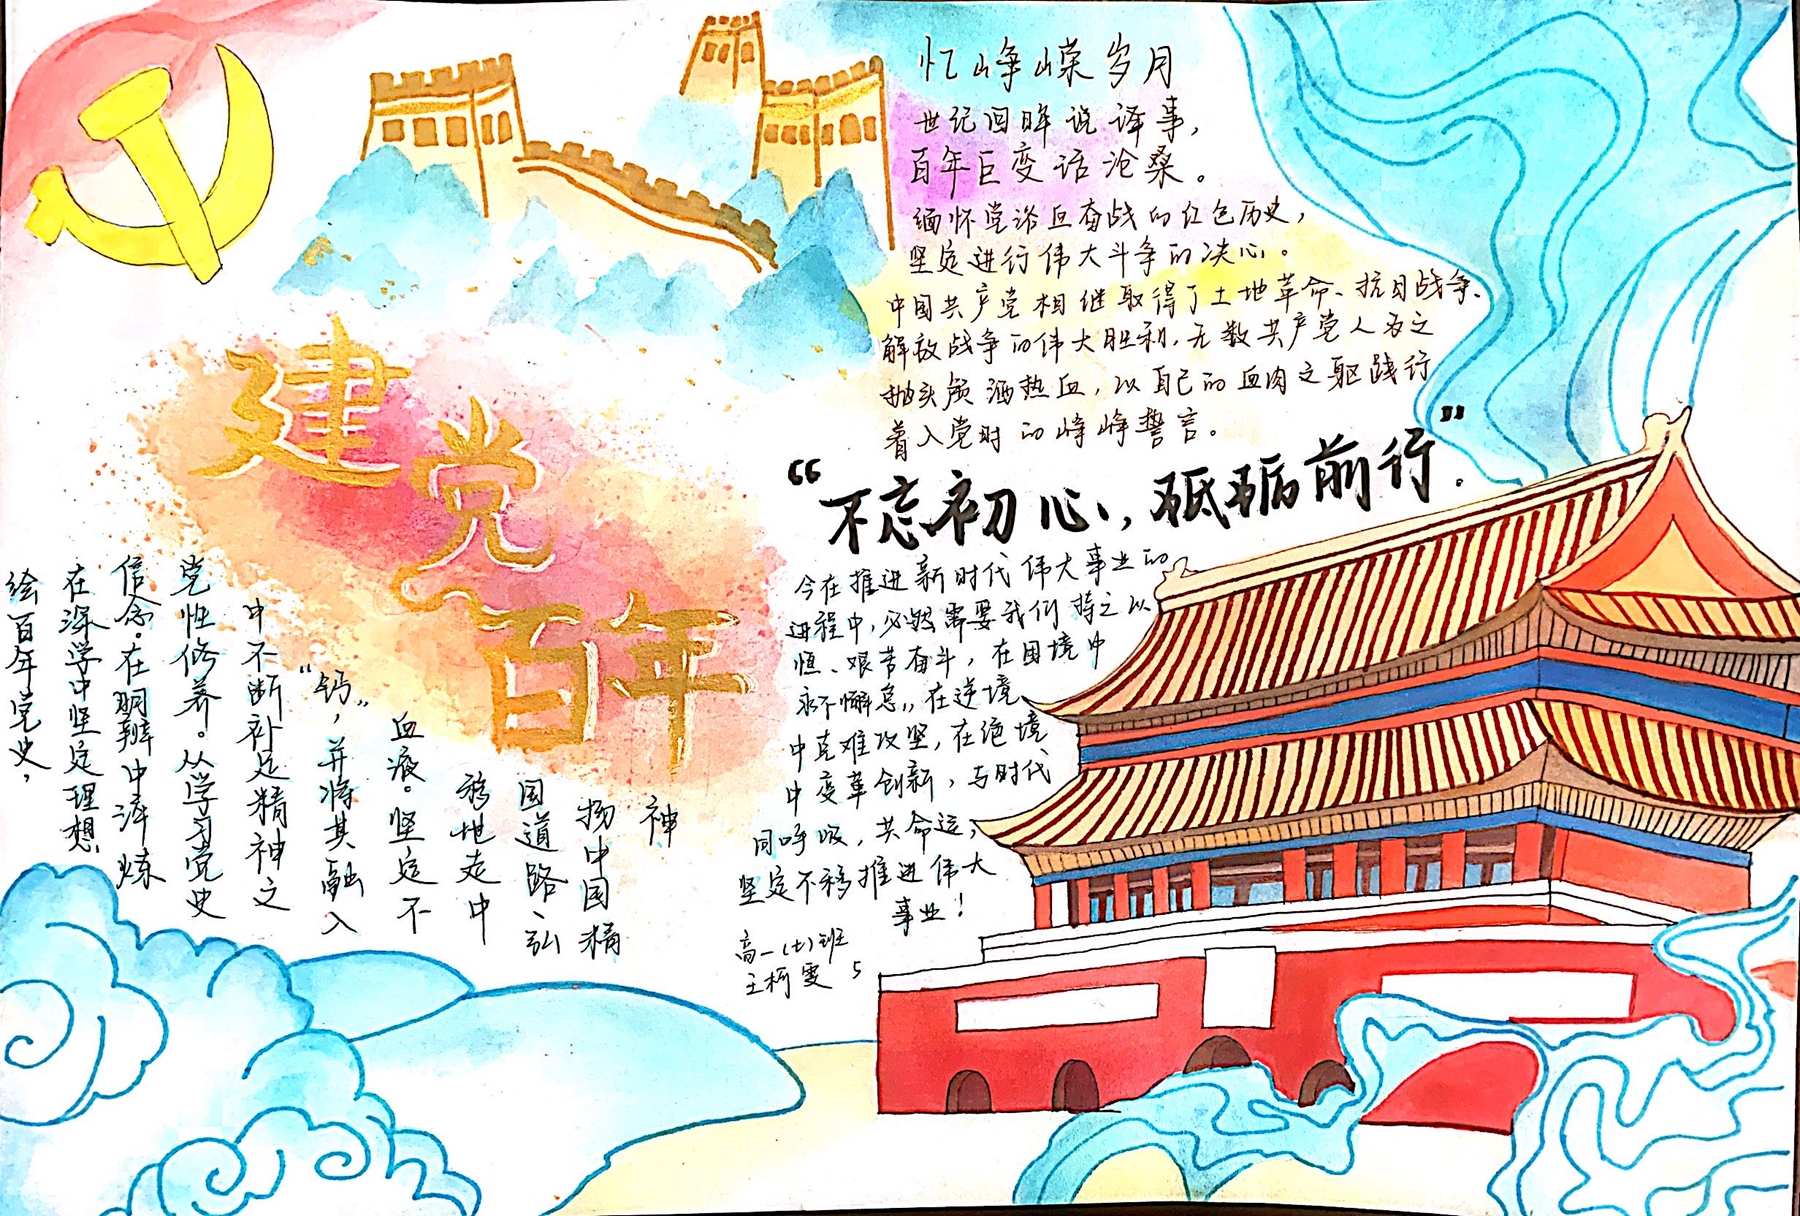 建党百年
忆峥嵘岁月
世纪回眸说译事，
百年巨变话沧桑。
缅怀党浴血奋战的红色历史，
坚定进行伟大斗争的决心。
中国共产党相继取得了土地革命、抗日战争、
解放战争的伟大胜利，无数共产党人为之
抛头颅洒热血，以自己的血肉之躯践行
着入党时的峥峥誓言。
“不忘初心，砥砺前行”.
今在推进新时代伟大事业的
进程中，必然需要我们持之以
恒、艰苦奋斗，在困境中
永不懈怠，在逆境
中克难攻坚，在绝境
中变革创新，与时代
同呼吸，共命运，
坚定不移推进伟大
事业！
高一(七)班
王柯雯 5
绘百年党史，
在深学中坚定理想
信念。在明辨中淬炼
党性修养。从学习党史
中不断补足精神之
“钙”，并将其融入
血液。坚定不
移地走中
国道路、弘
扬中国精
神